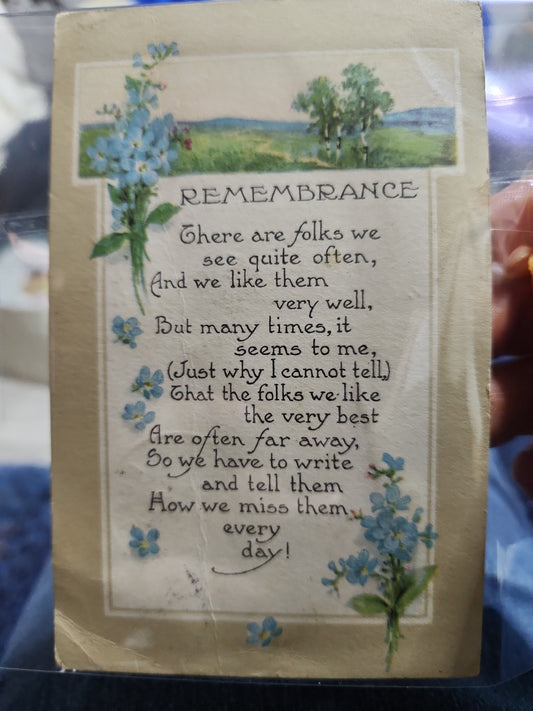 REMEMBRANCE
There are folks we
see quite often,
And we like them
very well,
But many times, it
seems to me,
(Just why I cannot tell,)
That the folks we like
the very best
Are often far away,
So we have to write
and tell them
How we miss them
every
day!